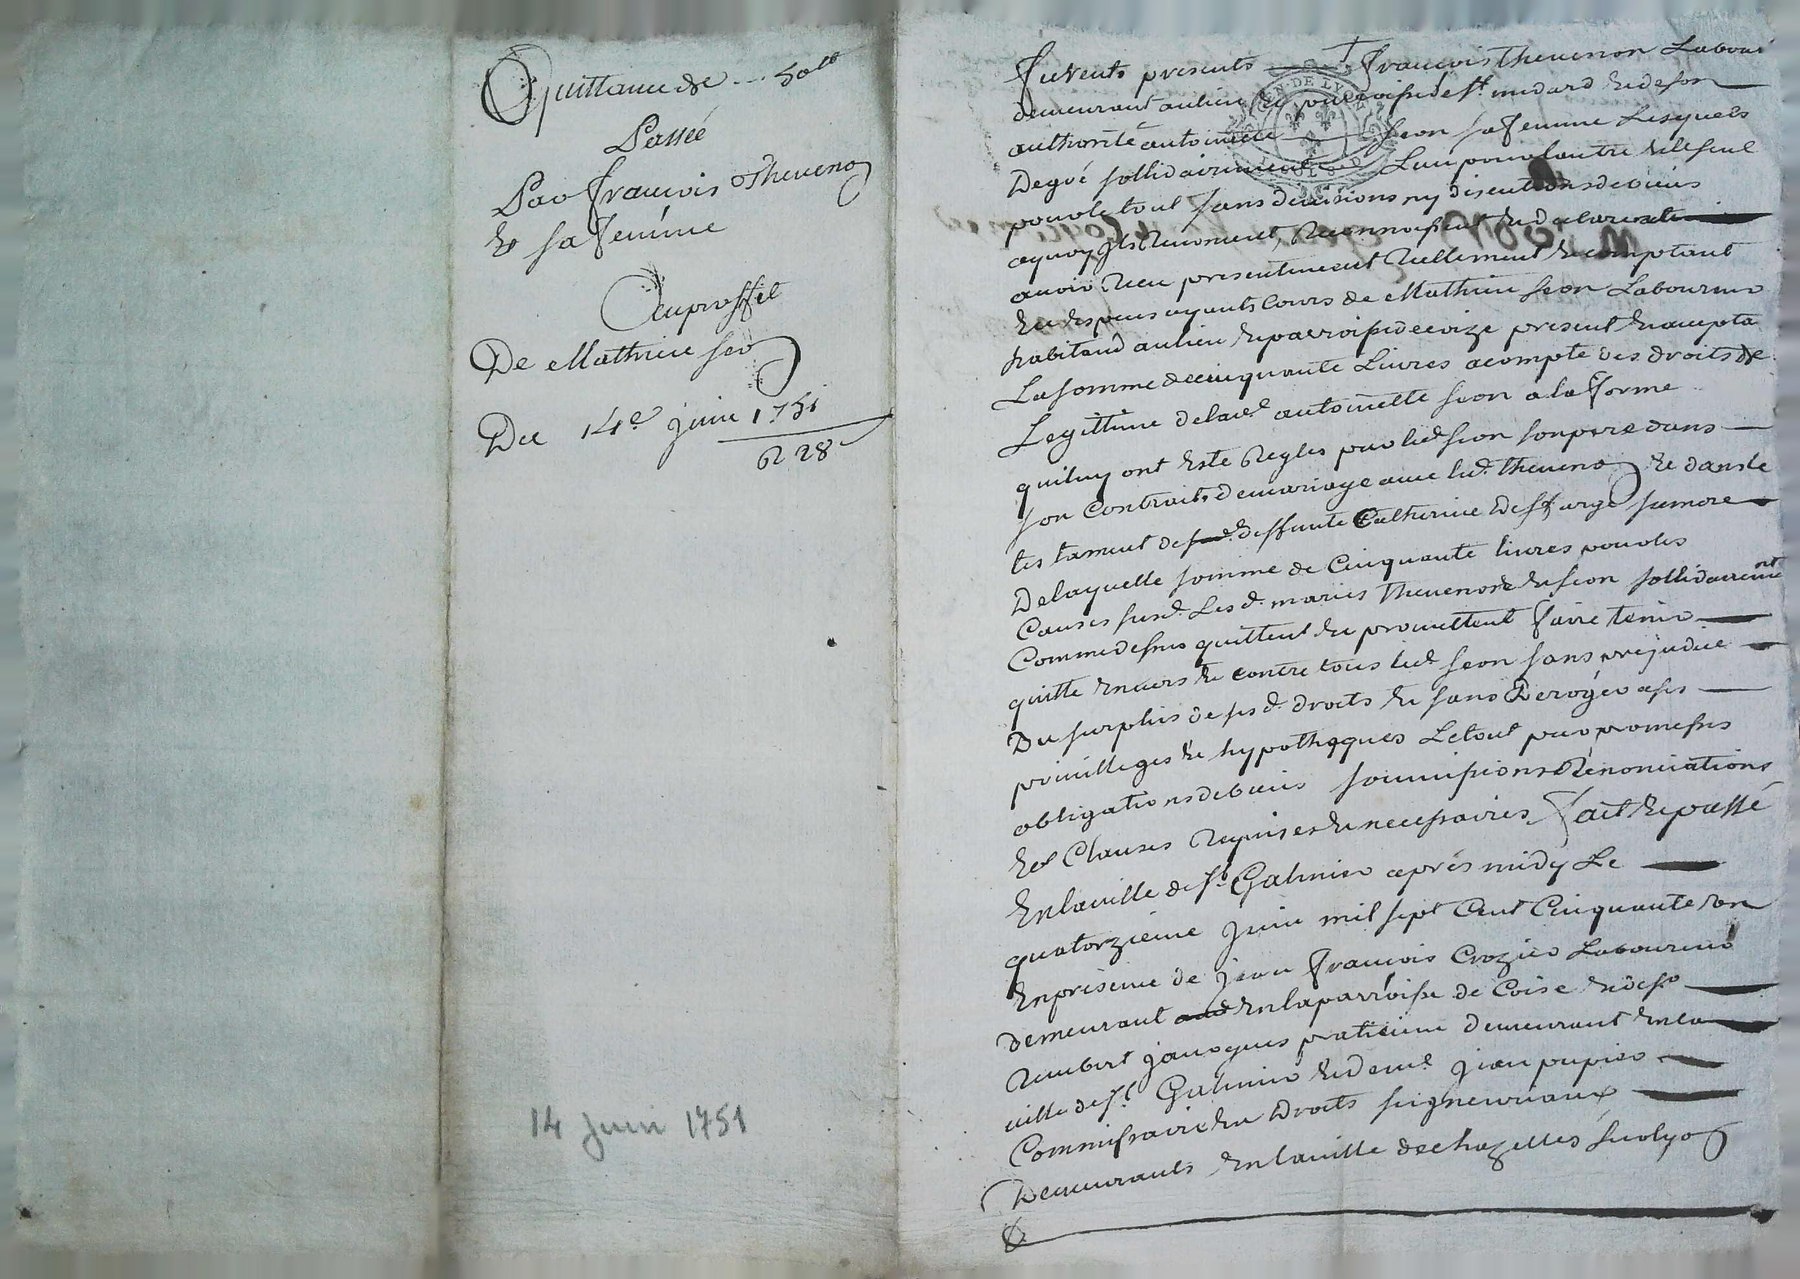 Quittance de --- 50ll
Passée
Par françois Theuenon
Et sa femme
Au proffit
De Mathieu seon
Du 14e juin 1751
R 28
14 juin 1751
furents presents françois Theuenon Labour
demeurant au lieu Et parroisse de st. medard Et de son
authorité antoinette seon sa femme Lesquels
De gré sollidairement L'un pour lautre Et le seul
pour le tout sans diuisions ny discutions de biens
aquoy Ils Renoncent Reconnoissent Et declarent
auoir Reçu presentement Reellement Et comptant
En Especes ayants Cours de Mathieu seon Laboureur
habitand au lieu Et parroisse de present Et accepta
La somme de cinquante Liures acompte des droits de
Legittime de lad. antoinette seon a la forme
quiluy ont Esté Reglés par led seon son pere dans
son Contrait de mariage auec led. theuenon Et dans le
testament de deffunte Catherine Desfarge sa mere
De laquelle somme de Cinquante liures pour les
Causes susd. Lesd. mariés theuenon Et seon sollidairement
Comme dessus quittent Et promettent faire tenir
quitte Enuers Et contre tous led seon sans prejudice
Du surplus de ses d. droits Et sans Deroger a ses
priuilleges Et hypotheques Le tout par promesses
obligations de biens soumissions Renonciations
Et Clauses Requises Et necessaires fait Et passé
En la uille de st. Galmier aprés midy Le
quatorzieme juin mil sept Cent Cinquante Un
En presence de jean françois Crozier Laboureur
demeurant En la parroisse de Coise Et de sr
Rambert janoques praticien demeurant En la
uille de st. Galmier Et de me. jean pupier
Commissaire En Droits seigneuriaux
Demeurants En la uille de chazelles sur lyon